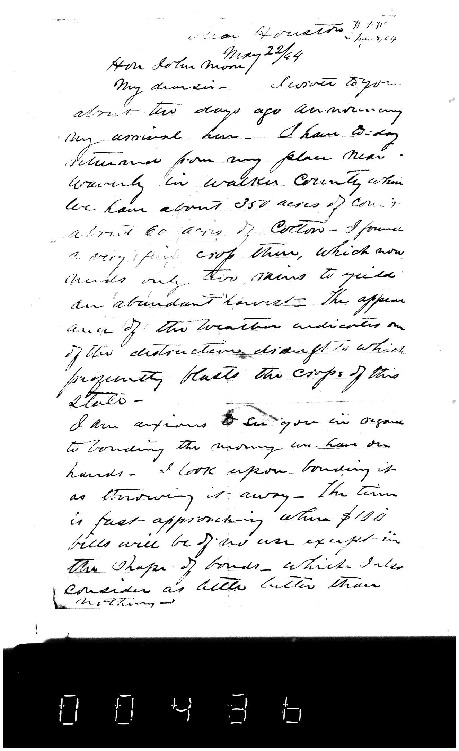 near Houston
May 22/64
Hon John Moore
My dear sir - I wrote to you
about two days ago announcing
my arrival here - I have to-day
returned from my place near
Waverly in Walker County where
we have about 350 acres of corn &
about 60 acres of Cotton - I found
a very fine crop there, which now
needs only two rains to yield
an abundant harvest - The appear
ance of the weather indicates one
of the distructive drought's which
frequently blasts the crops of this
State -
I am anxious to see you in regard
to bonding the money we have on
hands - I look upon bonding it
as throwing it away - The time
is fast approaching when $100
bills will be of no use except in
the shape of bonds - which I also
consider as little better than
nothing -
00436